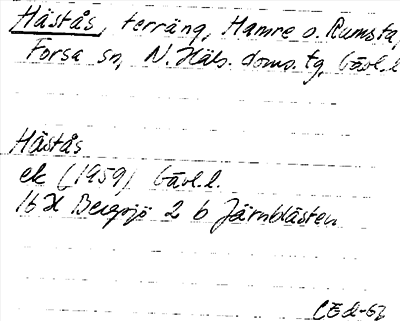 Hästås, terräng, Hamre o. Rumsta,
Forsa sn, N. Häls. doms. tg, Gävl.l.
Hästås
ek (1959) Gävl.l.
16 H Bergsjö 2 b Järnblästen